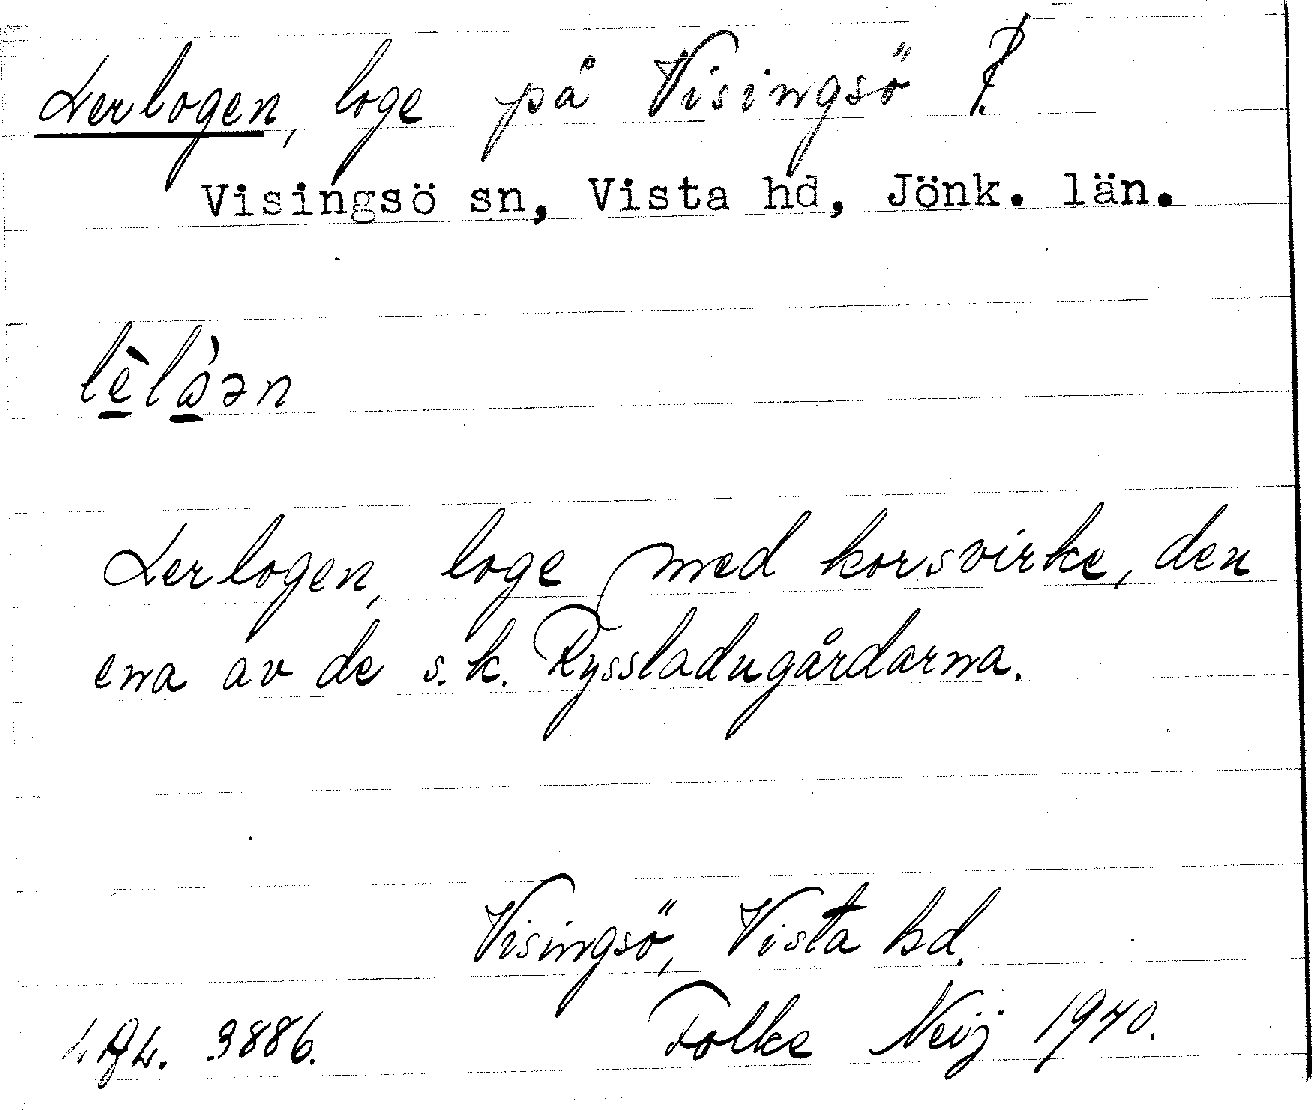 Lerlogen, loge på Visingsö
Visingsö sn, Vista hd, Jönk. län.
Lerlogen, loge med korsvirke, den
ena av de s.k. Ryssladugårdarna.
Visingsö, Vista hd.
3886. Folke Neij 1940.